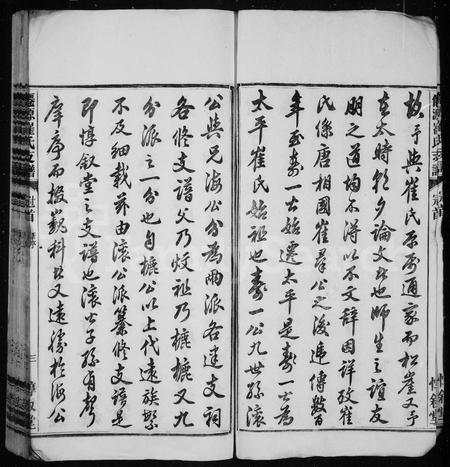 故予與崔氏原屬通家而松崖又予
在太時朝夕論文其也師生之誼友
朋之道均不得以不文辭因詳攷崔
氏係唐相國崔羣公之後遞傳數百
年至壽一公始遷太平是壽一公爲
太平崔氏始祖也壽一公九世孫滾
公與兄海公分爲兩派各建支祠
各修支譜父乃炆祖乃樾樾又九
分派之一分也自樾公以上代遠族繁
不及細載茲由滾公派纂修支譜是
即惇叙堂之支譜也滾公子孫有聲
庠序而掇巍科者又遠勝於海公
崔氏支譜
冠首
三
惇叙堂